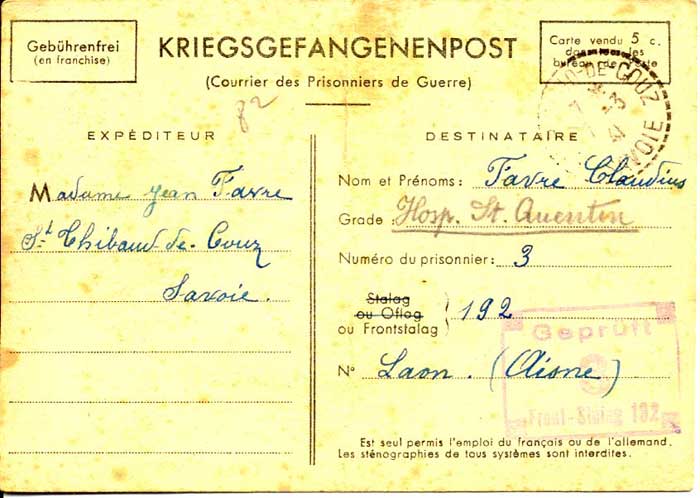 Gebührenfrei
(en franchise)
KRIEGSGEFANGENENPOST
(Courrier des Prisonniers de Guerre)
Carte vendu 5 c.
dans les
bureau de Poste
82
EXPÉDITEUR
Madame Jean Favre
St Thibaud-de-Couz
Savoie.
DESTINATAIRE
DE-COUZ
7
3
41
VOIE
Nom et Prénoms: Favre Claudius
Grade Hosp. St. Quentin
Numéro du prisonnier: 3
Stalag
ou Oflag
ou Frontstalag } 192
Nº Laon. (Aisne)
Geprüft
9
Front-Stalag 192
Est seul permis l'emploi du français ou de l'allemand.
Les sténographies de tous systèmes sont interdites.